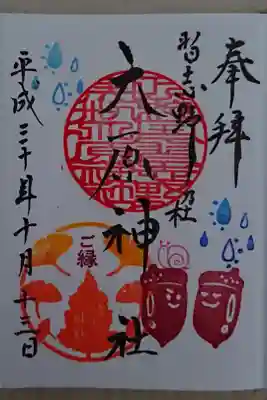 奉拝
習志野
大原神社
平成三十年十月十三日
ご縁